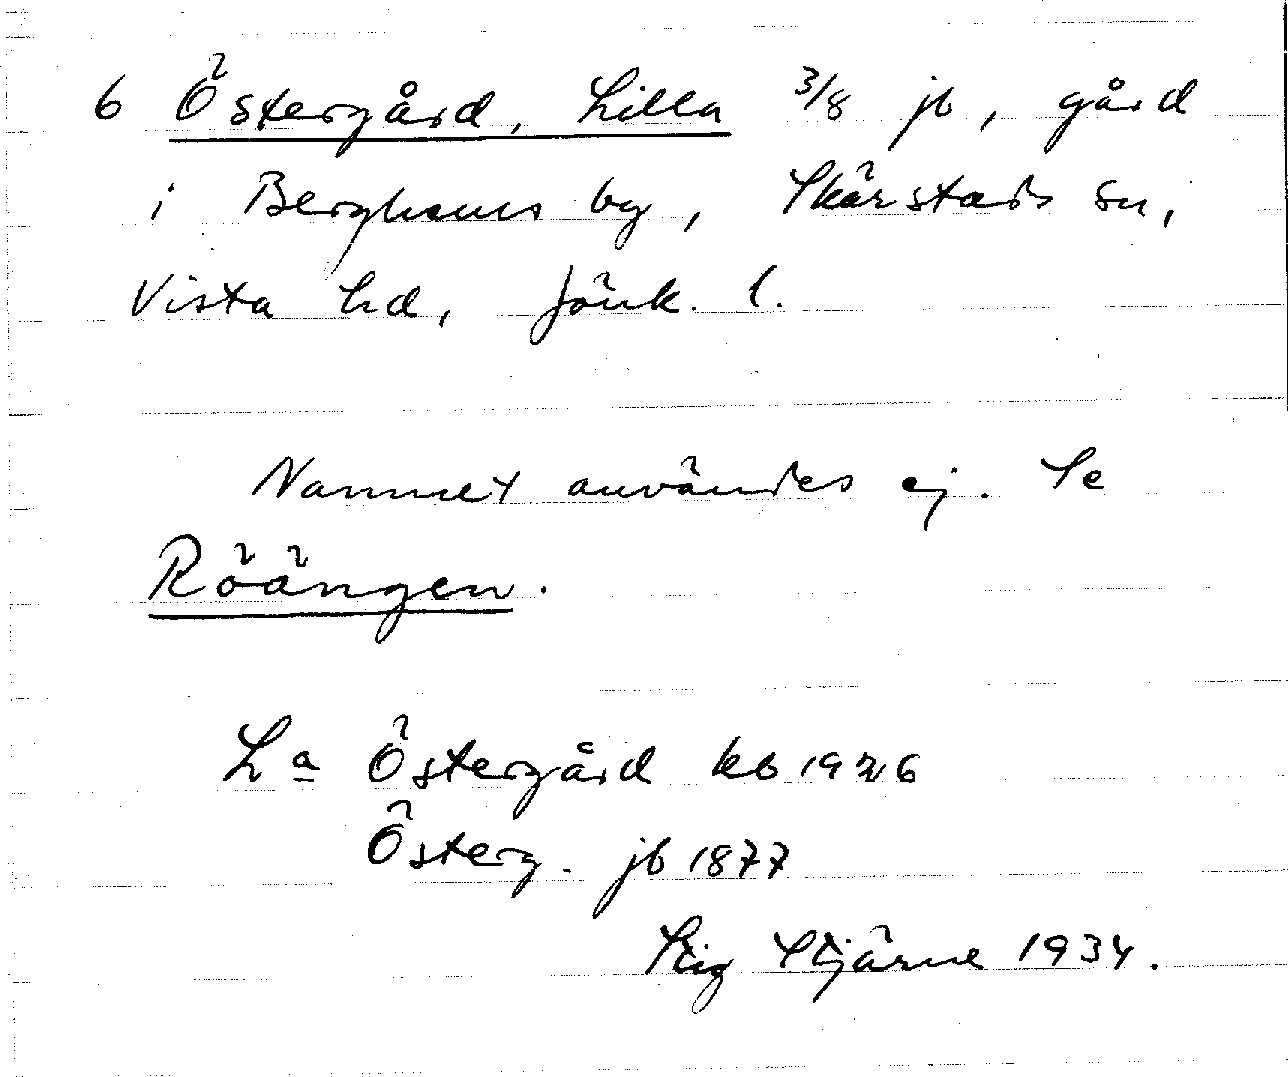 6 Östergård, Lilla 3/8 jb, gård
i Berghems by, Skärstads sn,
Vista hd, Jönk. l.
Namnet användes ej. Se
Röängen.
La Östergård kb 1926
Österg. jb 1877
Stig Stjärne 1934.